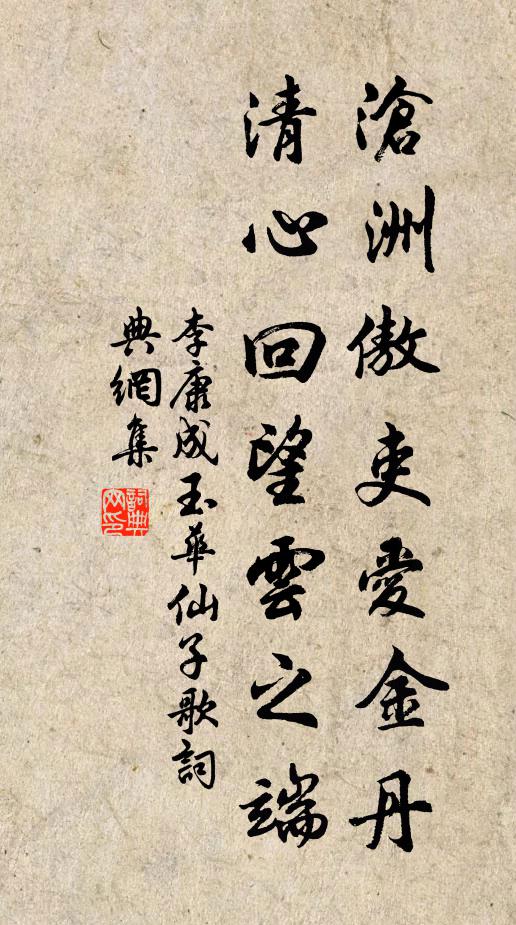 滄洲傲吏愛金丹
清心回望雲之端
李康成玉華仙子歌詞
典網集
詞典网印